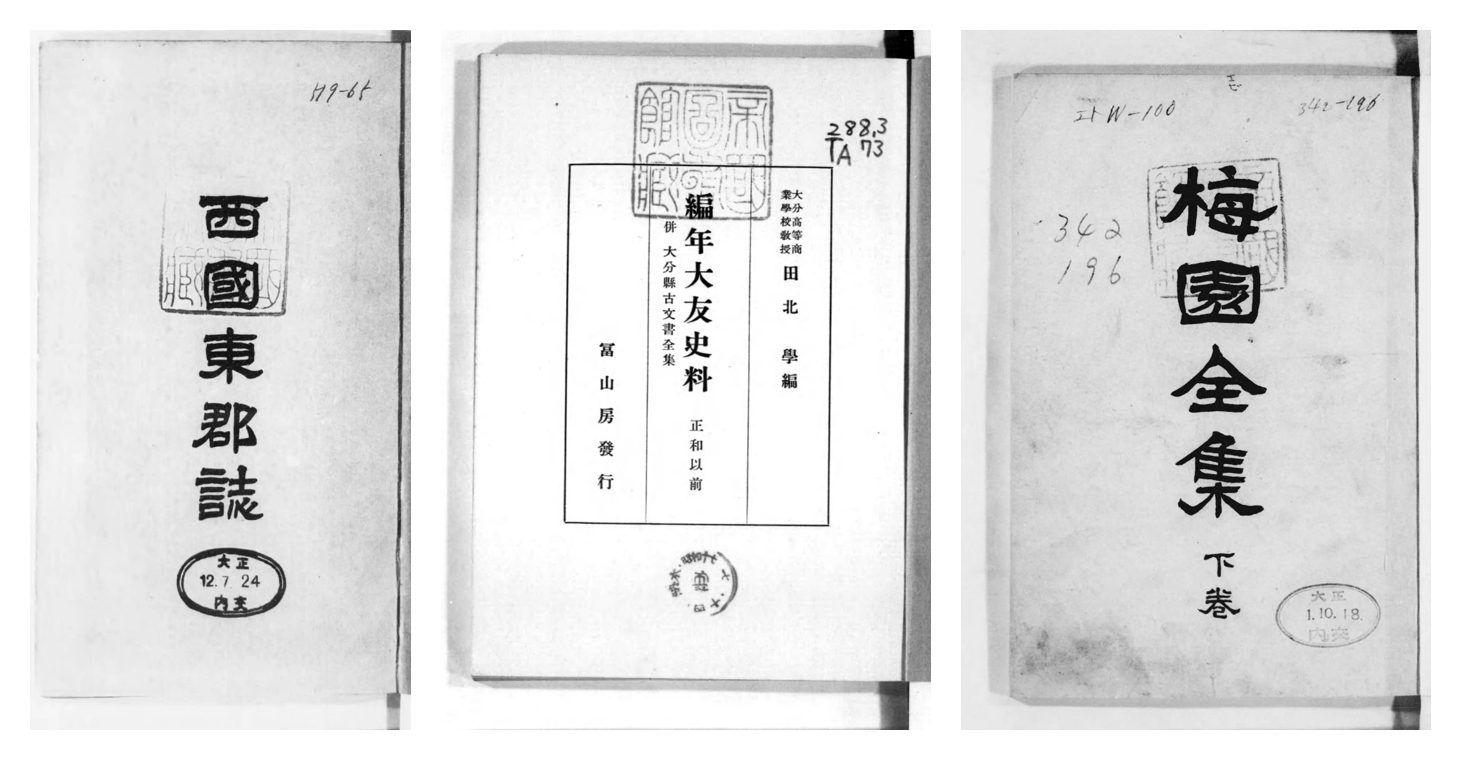 H9-65
西國東郡誌
大正
12.7.24
内交
288.3
TA 73
帝國圖書館藏
大分高等商業學校敎授 田北學編
編年大友史料 正和以前
併 大分縣古文書全集
冨山房發行
342-196
342
196
梅園全集
下卷
大正
1.10.18.
内交